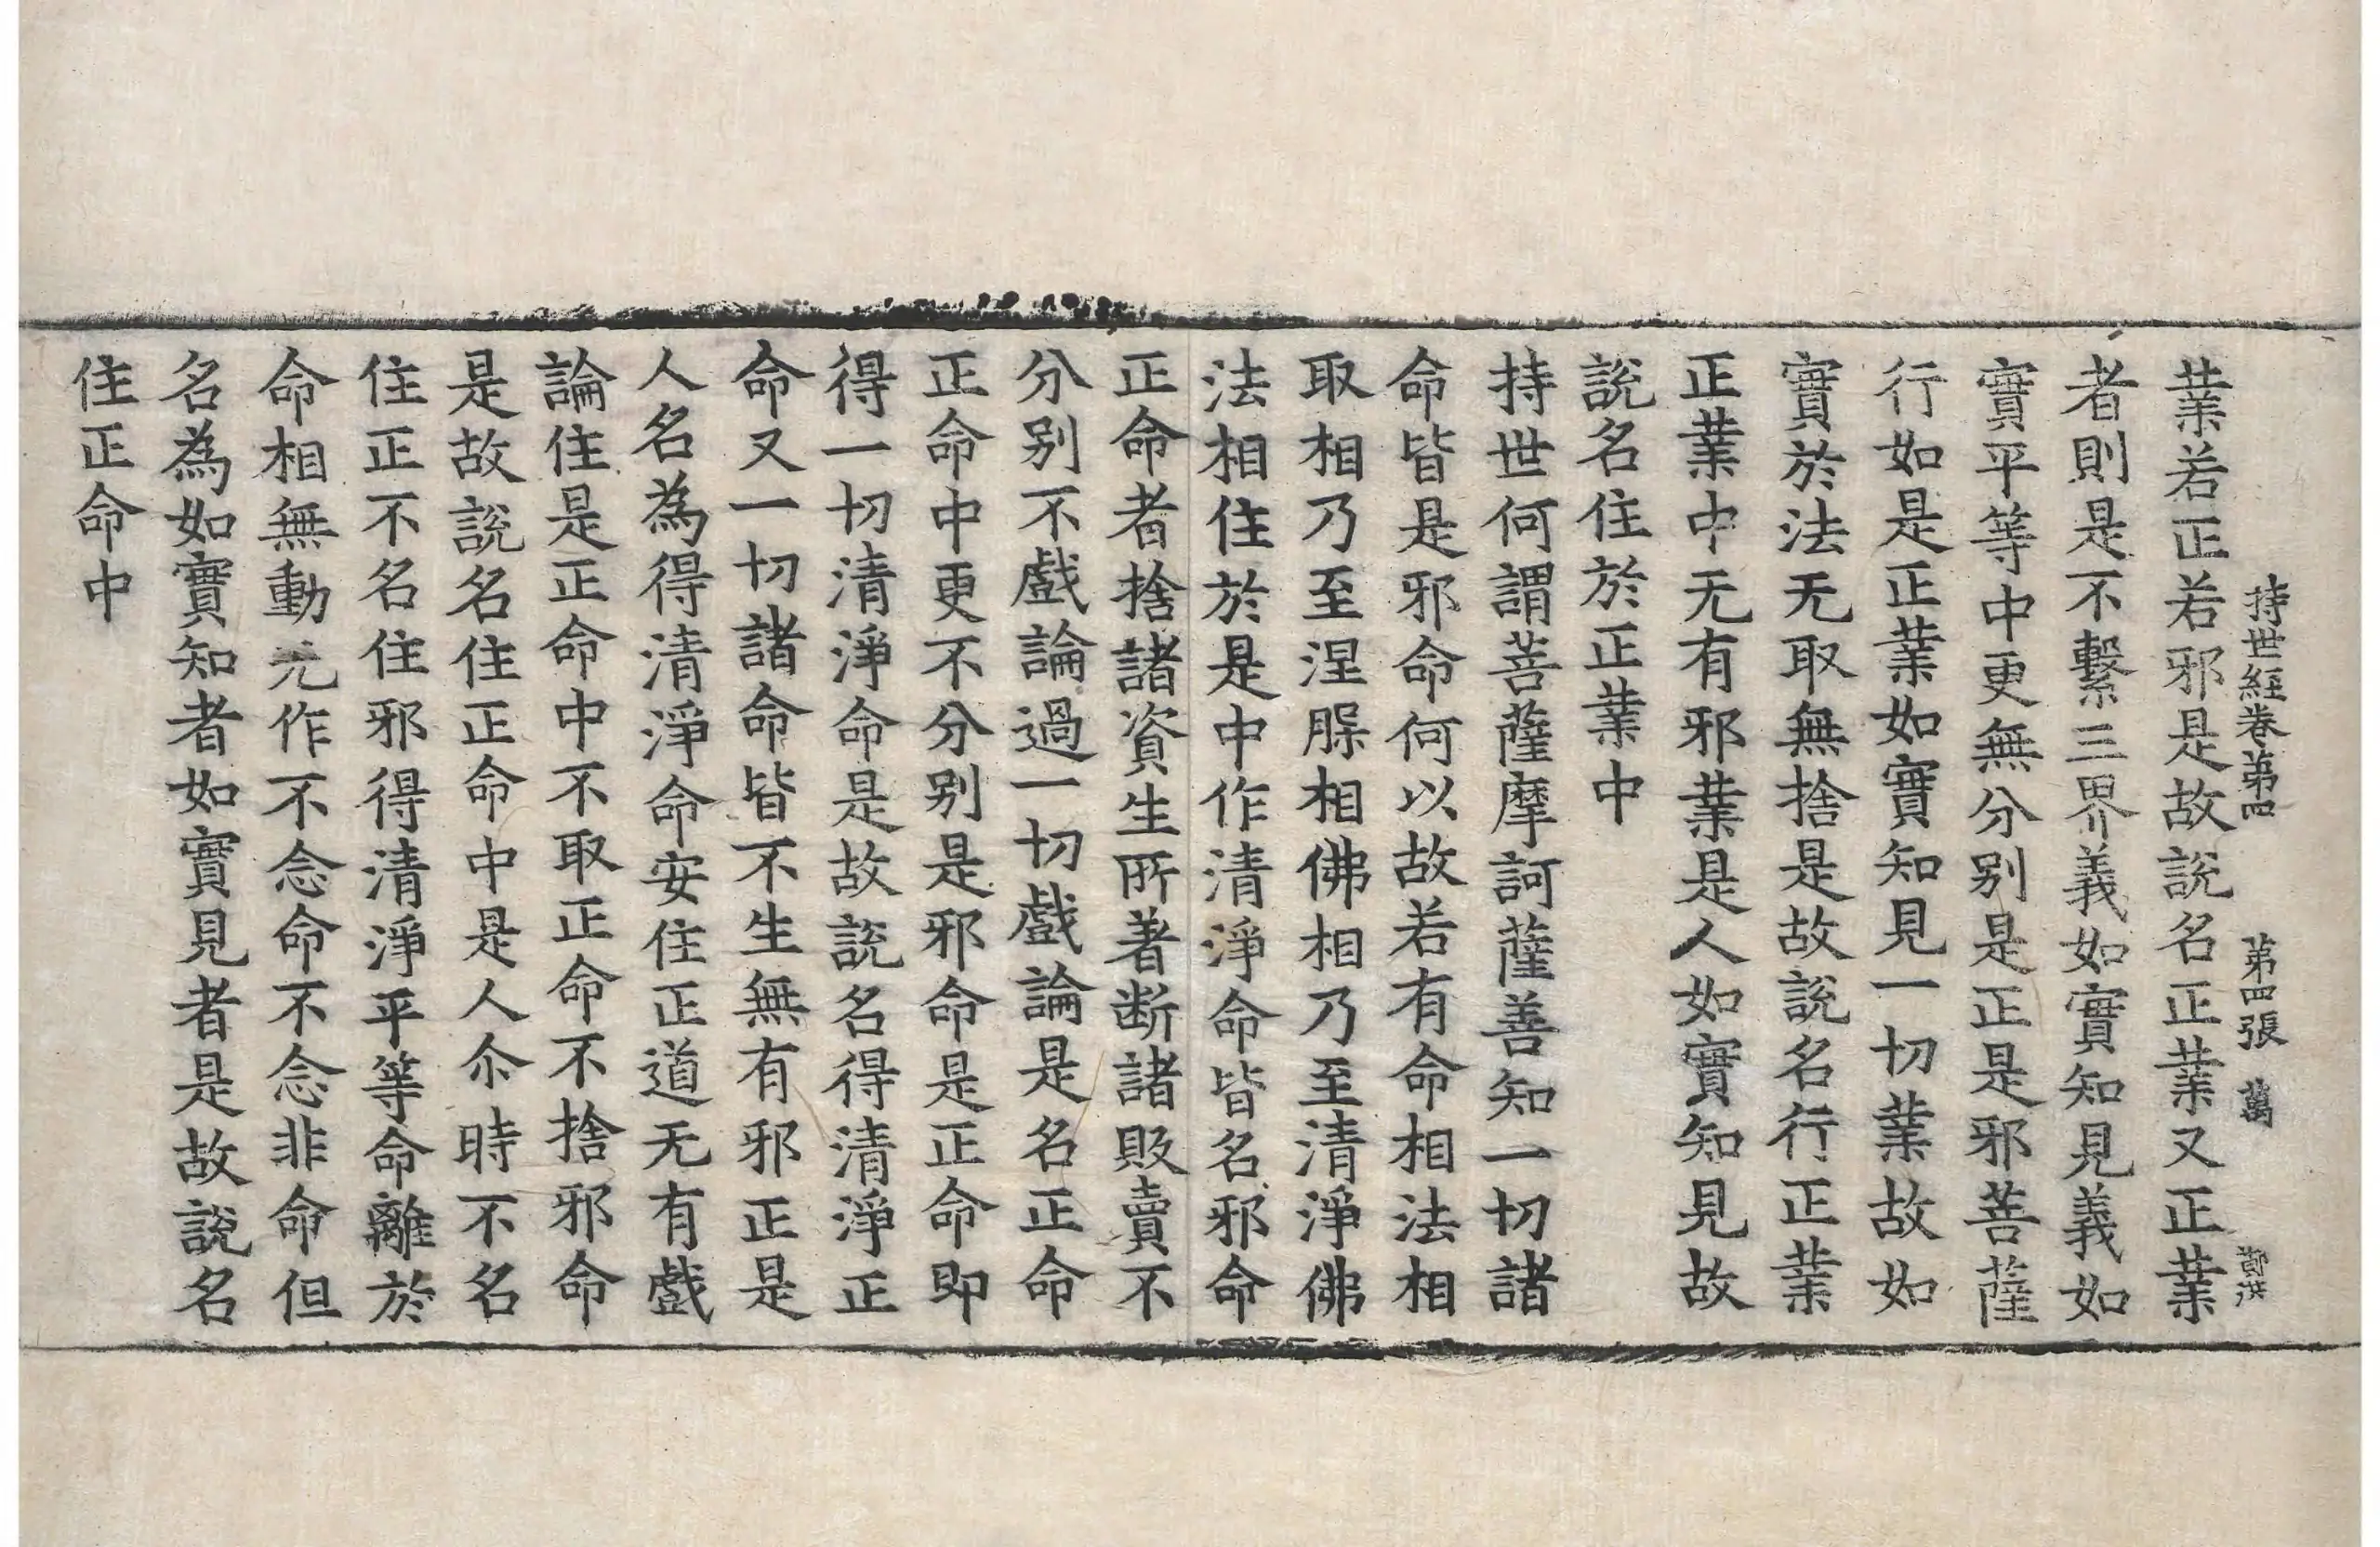 持世經卷第四 第四張 萬 鄭洪
業若正若邪是故說名正業又正業
者則是不繫三界義如實知見義如
實平等中更無分别是正是邪菩薩
行如是正業如實知見一切業故如
實於法无取無捨是故說名行正業
正業中无有邪業是人如實知見故
說名住於正業中
持世何謂菩薩摩訶薩善知一切諸
命皆是邪命何以故若有命相法相
取相乃至涅槃相佛相乃至清淨佛
法相住於是中作清淨命皆名邪命
正命者捨諸資生所著断諸敗賣不
分别不戲論過一切戲論是名正命
正命中更不分别是邪命是正命即
得一切清淨命是故說名得清淨正
命又一切諸命皆不生無有邪正是
人名為得清淨命安住正道无有戲
論住是正命中不取正命不捨邪命
是故說名住正命中是人尒時不名
住正不名住邪得清淨平等命離於
命相無動无作不念命不念非命但
名為如實知者如實見者是故說名
住正命中